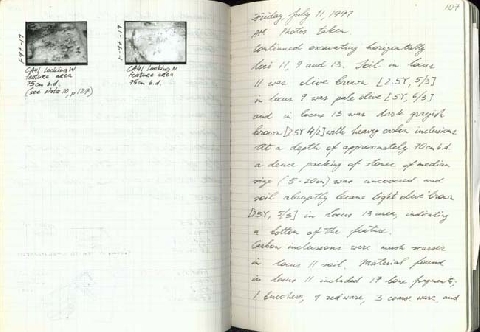 CA41 looking N
feature area
75cm b.d.
(see photo 10, p.
CA41 looking N
feature area
75cm b.d.
107
Friday July 11, 1997
AM Photos Taken
Continued excavating horizontally
loci 11, 9 and 13. Soil in locus
11 was olive brown [2.5Y, 5/3]
in locus 9 was pale olive [5Y, 6/3]
and in locus 13 was dark grayish
brown [2.5Y 4/2] with heavy carbon inclusions
At a depth of approximately 70cm b.d
a dense packing of stones of medium
size (5-20cm) was uncovered and
soil abruptly became light olive brown
[2.5Y, 5/3] in locus 13 area, indicating
a bottom of the feature.
Carbon inclusions were much
in locus 11 soil. Material found
in locus 11 included 19 bone fragments,
1 bucchero, 9 red ware, 3 coarse ware, and